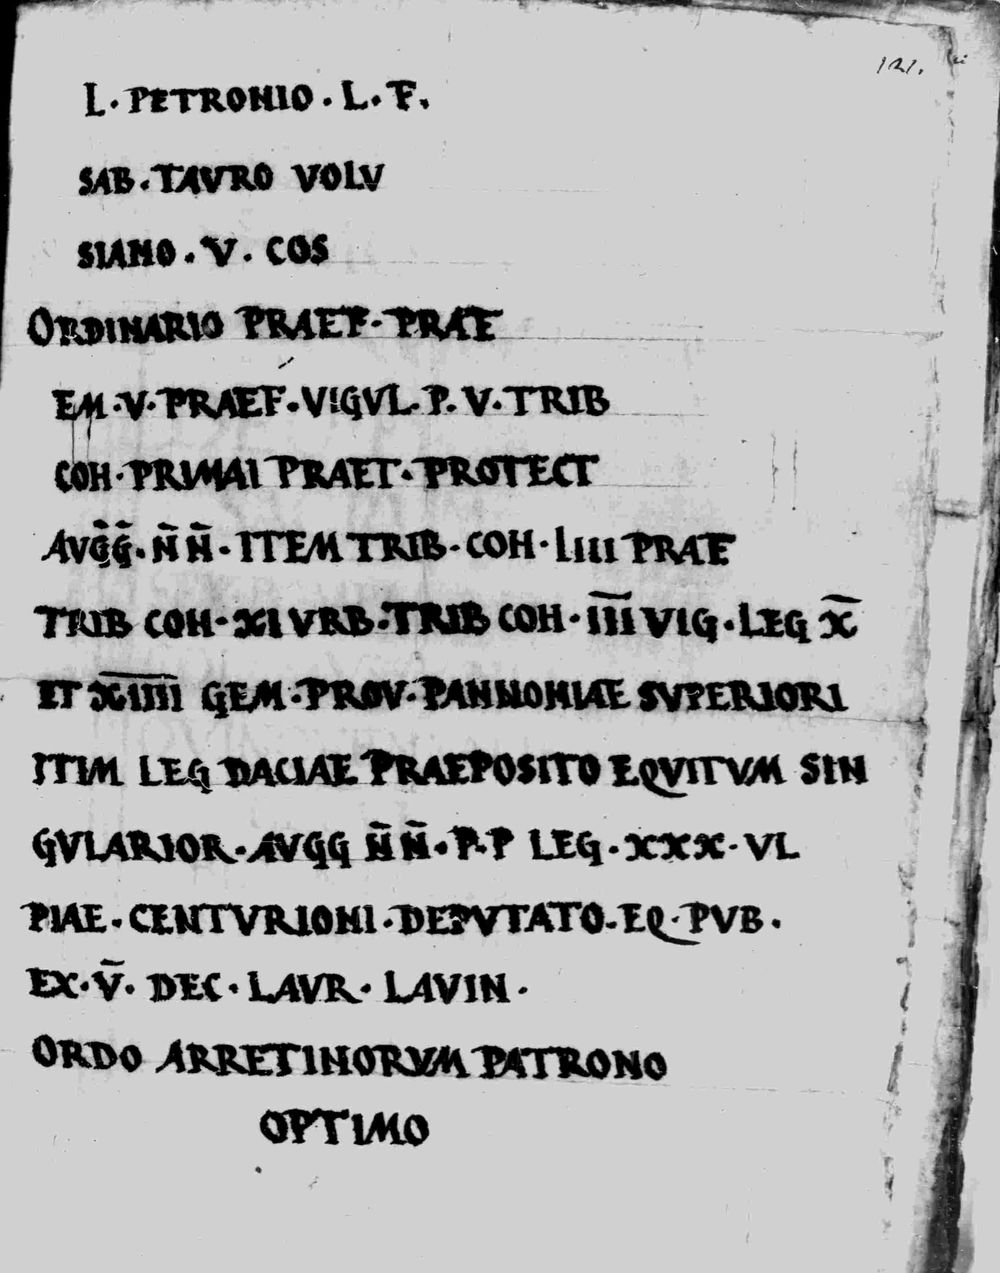 121.
L. PETRONIO. L. F.
SAB. TAVRO VOLV
SIANO. V. COS
ORDINARIO PRAEF. PRAE
EM. V. PRAEF. VIGVL. P. V. TRIB
COH. PRIMAI PRAET. PROTECT
AVG̃G̃. Ñ Ñ. ITEM TRIB. COH. IIIII PRAE
TRIB COH. XI VRB. TRIB COH. I̅I̅I̅ VIG. LEG X̅
ET X̅I̅I̅I̅I̅ GEM. PROV. PANNONIAE SVPERIORI
ITIM LEG DACIAE PRAEPOSITO EQVITVM SIN
GVLARIOR. AVGG Ñ Ñ. P. P LEG. XXX. VL
PIAE. CENTVRIONI. DEPVTATO. EQ. PVB.
EX. V̅. DEC. LAVR. LAVIN.
ORDO ARRETINORVM PATRONO
OPTIMO